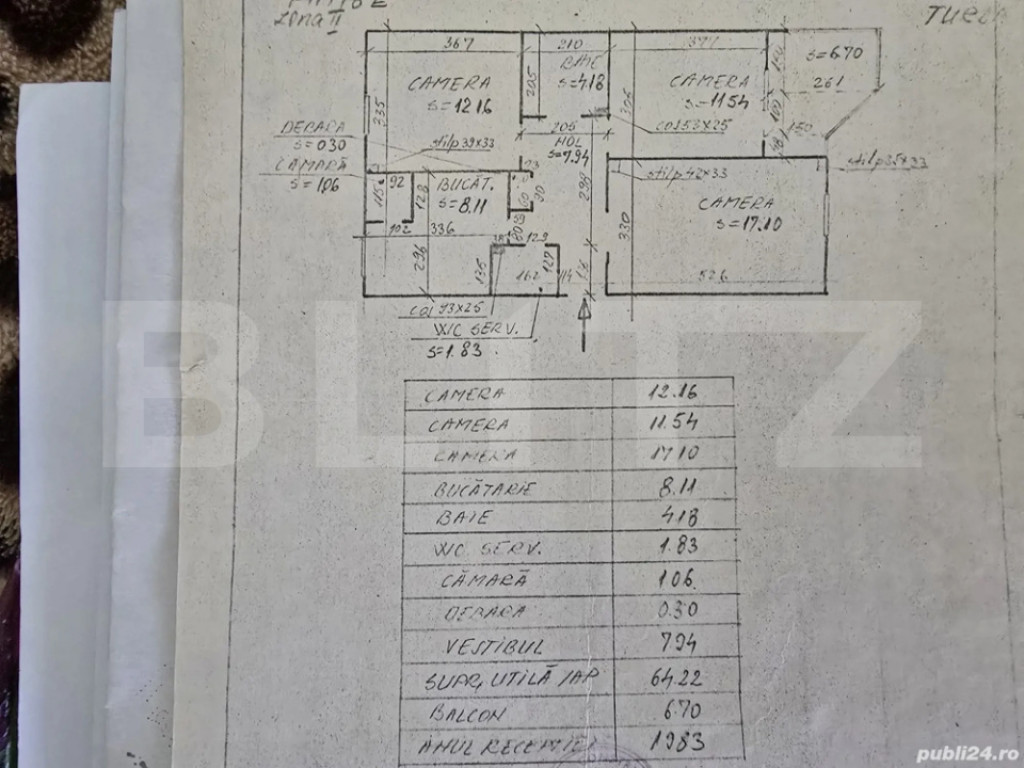 Zona II
367
210
377
BAIE
S=4.18
S=6.70
261
CAMERA
S=12.16
335
205
CAMERA
S=11.54
DEBARA
S=0.30
stîlp 39x33
205
HOL
S=7.94
COS 53x25
CAMARĂ
S=1.06
stîlp 42x33
stîlp 35x33
92
128
BUCĂT.
S=8.11
90
299
CAMERA
S=17.10
330
102
336
129
296
135
162
127
114
526
COS 93x25
WC SERV.
S=1.83
BLITZ
CAMERA 12.16
CAMERA 11.54
CAMERA 17.10
BUCĂTARIE 8.11
BAIE 4.18
WC SERV. 1.83
CĂMARĂ 1.06
DEBARA 0.30
VESTIBUL 7.94
SUPR. UTILĂ /AP 64.22
BALCON 6.70
ANUL RECEPȚIEI 1983
publi24.ro